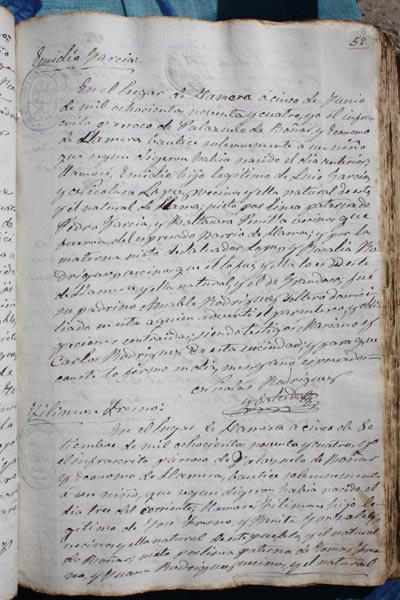 58.
Emidio Garcia:
En el lugar de Llamera á cinco de Junio
de mil ochocientos noventa y cuatro, yo el infras-
crito párroco de Palazuelo de Boñar, y Economo
de Llamera, bautice solemnemente a un niño
que segun digeron habia nacido el dia anterior;
llamose, Emidio hijo legitimo de Luis Garcia,
y vecinos, y ella natural de este,
y el natural de Llama; nieto por linea paterna de
Pedro Garcia, y Baltasara vecinos que
fueron del espresado barrio de Llama; y por la
materna nieto de Salvador Lopez, y Ro-
driguez vecinos que el fue, y ella lo es de este
de Llamera, y ella natural y el de Grandoso, fué
su padrino Rodriguez, soltero domici-
liado en esta a quien adverti el parentesco, y obli-
gaciones contraidas; siendo testigos Mariano y
Carlos Rodriguez de esta vecindad; y para que
conste lo firmo en dia, mes y año
Nicolas Rodriguez
Filimena Fresno:
En el lugar de Llamera á cinco de Se-
tiembre de mil ochocientos noventa y cuatro, yo
el infrascrito párroco de Palazuelo de Boñar
y Economo de Llamera, bautice solemnemente
a un niño, que segun digeron habia nacido el
dia tres del corriente, llamose hijo le-
gitimo de José Fresno, y Benita Gonzalez,
vecinos, y ella natural de este pueblo, y el natural
de Boñar; nieto por linea paterna de Tomas Fres-
no, y Juana Rodriguez vecinos, y el natural